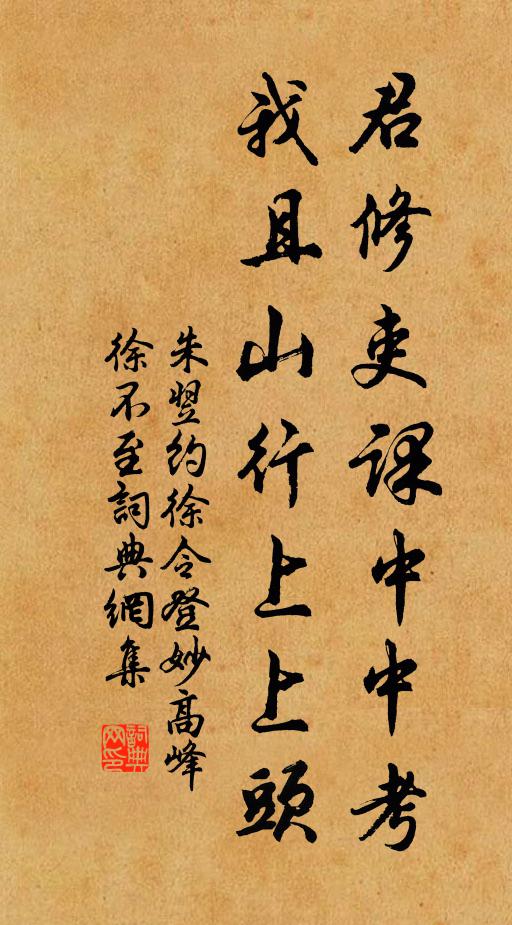 君修吏课中中考
我且山行上上頭
朱翌約徐令登妙高峰
徐不至詞典網集
詞典網印